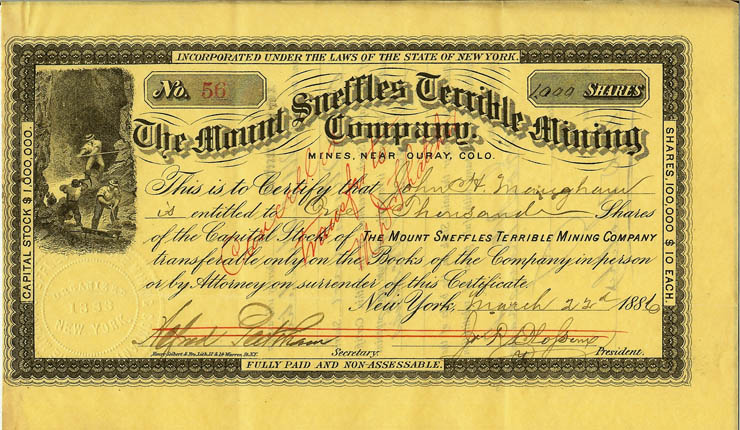 INCORPORATED UNDER THE LAWS OF THE STATE OF NEW YORK.
No. 56
1000 SHARES
The Mount Sneffles Terrible Mining
Company.
MINES, NEAR OURAY, COLO.
This is to Certify that John H.
is entitled to One Thousand Shares
of the Capital Stock of THE MOUNT SNEFFLES TERRIBLE MINING COMPANY
transferable only on the Books of the Company in person
or by Attorney on surrender of this Certificate.
New York, March 22d 1886
Alfred
Secretary.
President.
FULLY PAID AND NON-ASSESSABLE.
CAPITAL STOCK $1,000,000.
SHARES, 100,000 $10 EACH.
Cancelled
NEW YORK